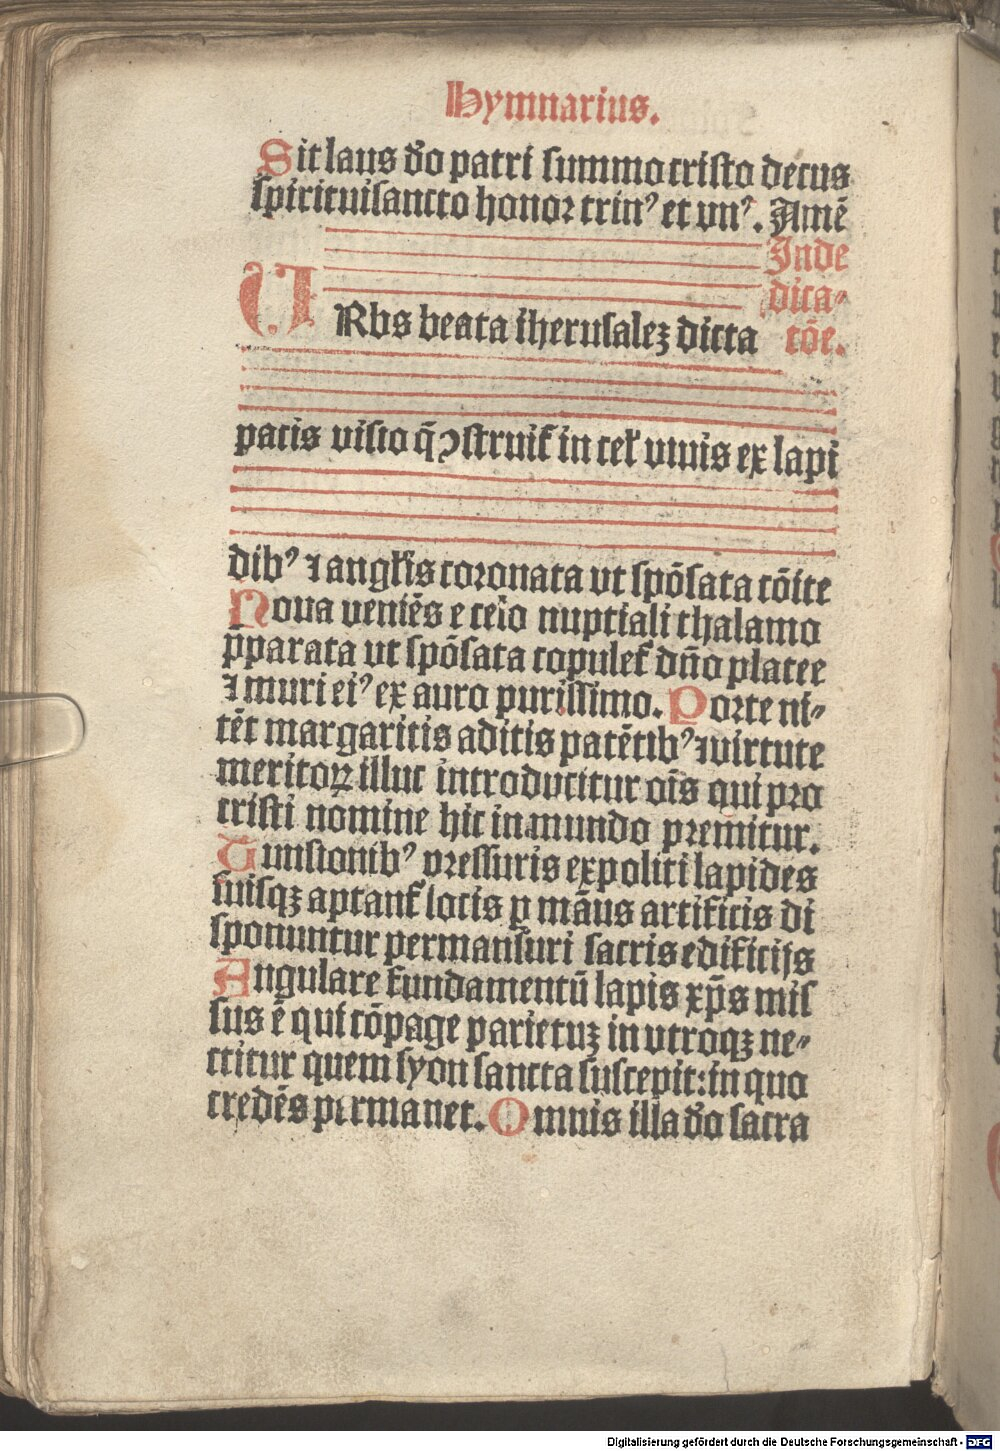 Hymnarius.
Sit laus dō patri summo cristo decus
spirituisancto honor trinꝰ et vnꝰ. Amē
In de
dica⸗
tōe.
VRbs beata iherusaleꝫ dicta
pacis visio q̄ ꝯstruiť in cel̛ viuis ex lapi
dibꝰ ⁊ angl̛is coronata vt spōsata cōite
Noua veniēs e celo nuptiali thalamo
p̄parata vt spōsata copuleť dn̄o platee
⁊ muri eiꝰ ex auro purissimo. Porte ni⸗
tēt margaritis aditis patētibꝰ ⁊ virtute
meritoꝝ illuc introducitur oīs qui pro
cristi nomine hic in mundo premitur.
Tunsionibꝰ pressuris expoliti lapides
suisqꝫ aptanť locis ꝑ māus artificis di
sponuntur permansuri sacris edificijs
Angulare fundamentū lapis xp̄s mis
sus ē qui cōpage parietuꝫ in vtroqꝫ ne⸗
ctitur quem syon sancta suscepit: in quo
credēs permanet. Omnis illa dō sacra
Digitalisierung gefördert durch die Deutsche Forschungsgemeinschaft - DFG